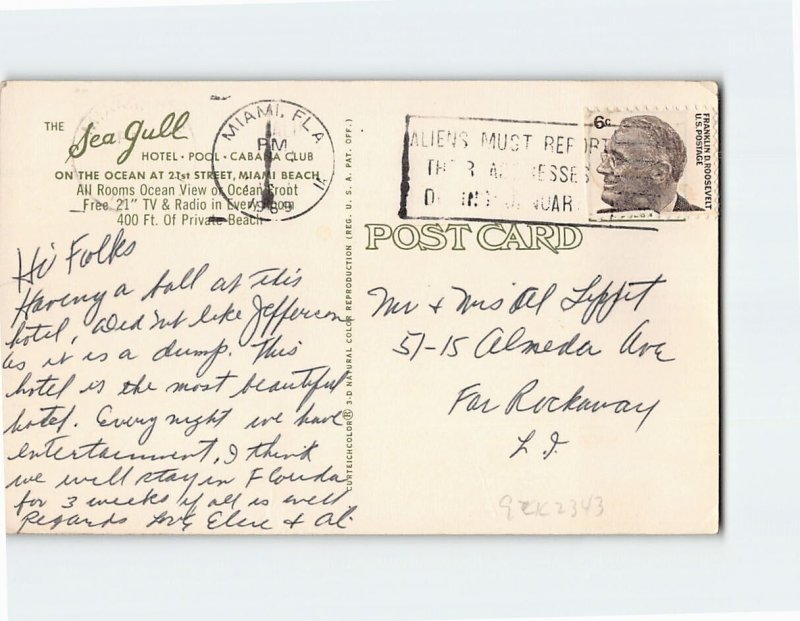 THE
Sea Gull
HOTEL • POOL • CABANA CLUB
ON THE OCEAN AT 21st STREET, MIAMI BEACH
All Rooms Ocean View or Ocean Front
Free 21" TV & Radio in Every Room
400 Ft. Of Private Beach
MIAMI, FLA
PM
1969
ALIENS MUST REPORT
THEIR ADDRESSES
DURING JANUARY
6c
FRANKLIN D. ROOSEVELT
U.S. POSTAGE
POST CARD
CURTEICHCOLOR® 3-D NATURAL COLOR REPRODUCTION (REG. U. S. A. PAT. OFF.)
Hi Folks
Having a ball at this
hotel, didn't like Jefferson
as it is a dump. This
hotel is the most beautiful
hotel. Every night we have
entertainment, I think
we will stay in Florida
for 3 weeks if all is well
Regards Love Elsie & Al.
Mr + Mrs Al
51-15 Almeda Ave
Far Rockaway
L I.